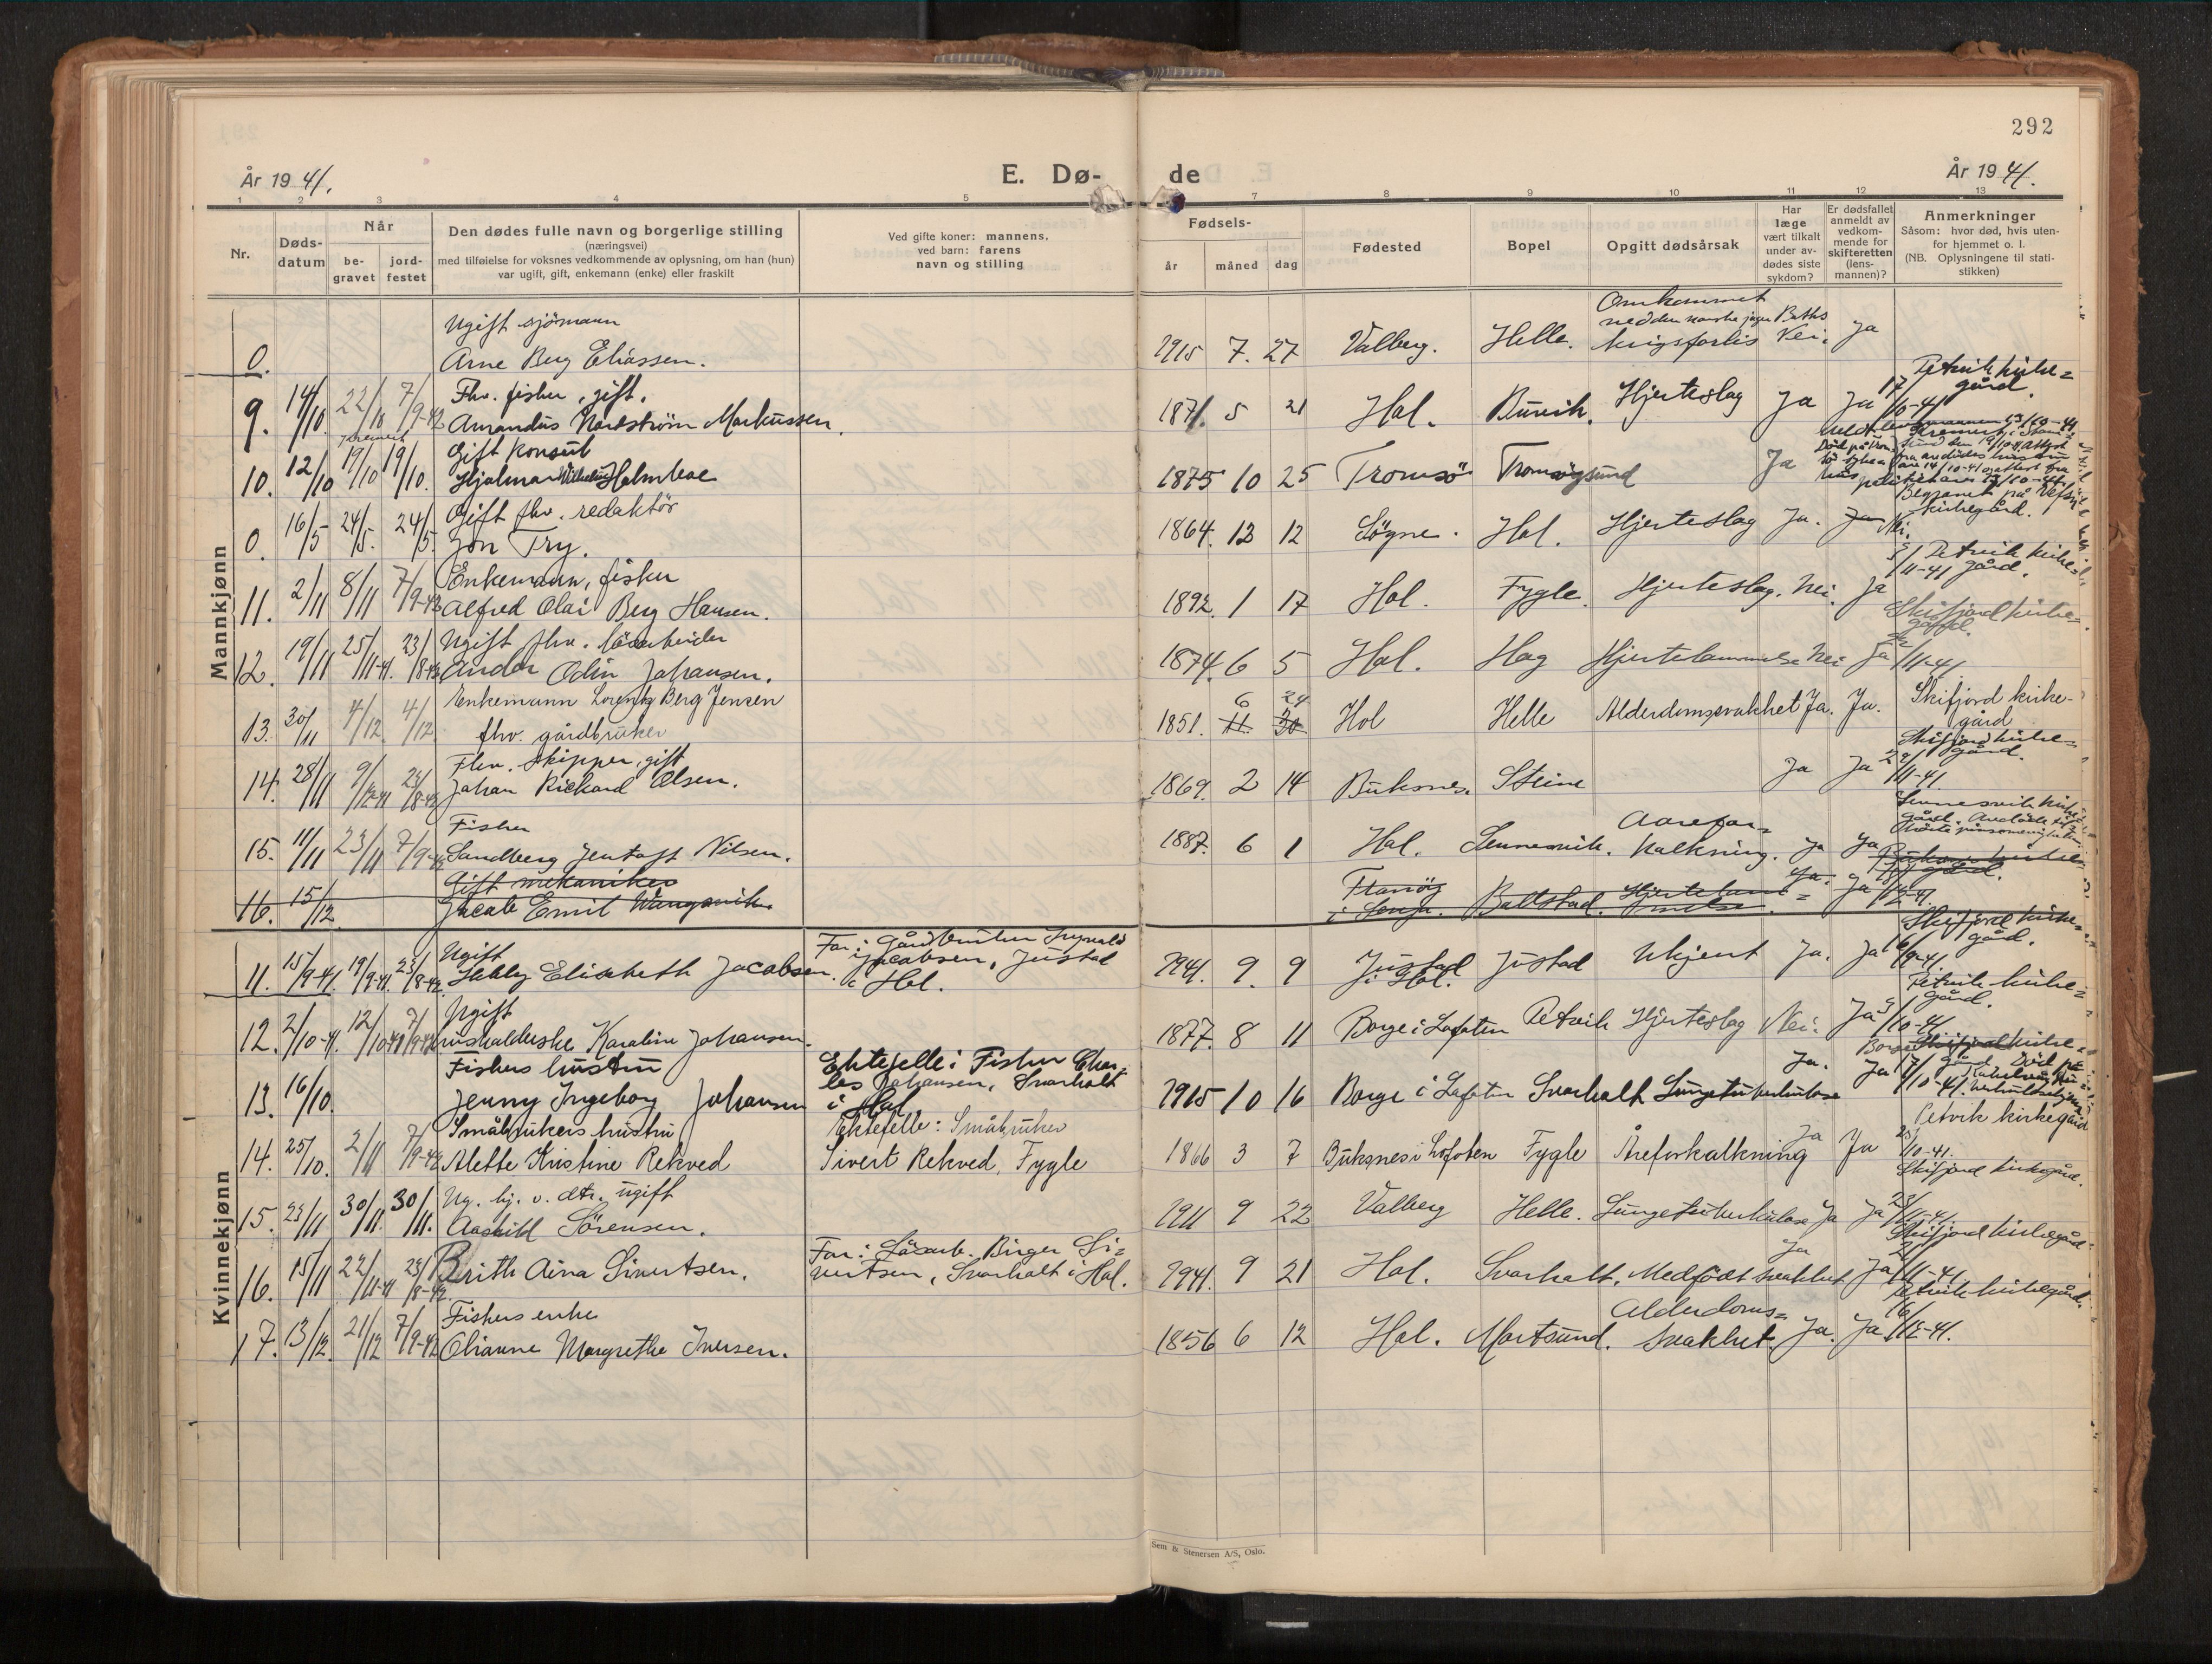 292
År 1941.
E. Dø-
de
År 1941.
1 2 3 4 5 7 8 9 10 11 12 13
Nr.
Døds-
datum
Når
be-
gravet
jord-
festet
Den dødes fulle navn og borgerlige stilling
(næringsvei)
med tilføielse for voksnes vedkommende av oplysning, om han (hun)
var ugift, gift, enkemann (enke) eller fraskilt
Ved gifte koner: mannens,
ved barn: farens
navn og stilling
Fødsels-
år måned dag
Fødested
Bopel
Opgitt dødsårsak
Har
læge
vært tilkalt
under av-
dødes siste
sykdom?
Er dødsfallet
anmeldt av
vedkom-
mende for
skifteretten
(lens-
mannen)?
Anmerkninger
Såsom: hvor død, hvis uten-
for hjemmet o. l.
(NB. Oplysningene til stati-
stikken)
Mannkjønn
Ugift sjömann
Omkommet
0. Arne Berg Eliassen. 1915 7. 27 Valberg. Helle. krigsforlis Nei. Ja
Fhv. fisker, gift.
Petvik kirke=
gård.
9. 14/10. 22/10 7/9-42 Amandus Nordstrøm Markussen. 1871. 5 21 Hol. Burvik. Hjerteslag Ja Ja 17/10-41
Gift konsul
10. 12/10 19/10 19/10. Hjalmar Wilhelm Holmboe 1875 10 25 Tromsö Tromsöysund Ja
Begravet på
kirkegård.
Gift fhv. redaktör
0. 16/5 24/5. 24/5. Jon Try. 1864. 12 12 Søgne. Hol. Hjerteslag Ja. Ja Nei.
Enkemann, fisker
Petvik kirke=
gård.
11. 2/11 8/11 7/9-42 Alfred Olai Berg Hansen. 1892. 1 17 Hol. Fygle. Hjerteslag. Nei. Ja 5/11-41
Ugift fhv. lösarbeider
Skifjord kirke=
gård.
12. 19/11 25/11-41. 23/8-42 Andor Odin Johansen. 1874. 6 5 Hol. Hag Hjertelammelse Nei Ja /11-41
Enkemann Lorentz Berg Jensen
6 24
13. 30/11 4/12. 4/12 fhv. gårdbruker 1851. 11. 30 Hol Helle Alderdomssvakhet Ja. Ja. Skifjord kirke-
gård
Fhv. skipper, gift
Skifjord kirke=
gård.
14. 28/11 9/12-41 23/8-42 Johan Rickard Olsen. 1869. 2 14 Buksnes. Steine Ja Ja 29/11-41.
Fisker
Aarefor=
Sennesvik kirke
15. 11/11 23/11 7/9-42 Sandberg Jentoft Nilsen. 1887. 6 1 Hol. Sennesvik. kalkning. Ja Ja
Gift mekaniker
16. 15/12. Jacob Emil Wangsvik. i Senja. Ballstad. Hjertelam=
melse. Ja. Ja
Kvinnekjønn
Ugift
Far: Gårdbruker
Jacobsen, Justad
i Hol.
Skifjord kirke=
gård.
11. 15/9-41. 19/9-41. 23/8-42. Elisabeth Jacobsen. 1941. 9. 9 Justad
i Hol. Justad Ukjent Ja. Ja 16/9-41.
Ugift
Petvik kirke=
gård.
12. 2/10-41. 12/10-41 7/9-42 husholderske Karoline Johansen. 1877. 8 11 Borge i Lofoten Petvik Hjerteslag Nei. Ja 5/10-41
Fiskers hustru
Ektefelle: Fisker Char-
les Johansen, Svarholt
i Hol.
13. 16/10. Jenny Ingeborg Johansen 1915 10 16 Borge i Lofoten Svarholt Lungetuberkulose Ja. Ja 17/10-41.
Småbrukers hustru
Ektefelle: Småbruker
Petvik kirkegård
14. 25/10. 2/11 7/9-42 Alette Kristine Rekved Sivert Rekved, Fygle 1866 3 7 Buksnes i Lofoten Fygle Åreforkalkning Ja Ja 25/10-41.
Ug. hj. v. dtr. ugift
Skifjord kirkegård.
15. 23/11 30/11. 30/11. Aashild Sörensen. 1911 9 22 Valberg Helle. Lungetuberkulose Ja Ja 25/11-41.
Far: Lösarb. Birger Si=
vertsen, Svarholt i Hol.
Skifjord kirkegård
16. 15/11 22/11-41 23/8-42. Brith Aina Sivertsen. 1941. 9 21 Hol. Svarholt. Medfödt svakhet Ja Ja 21/11-41
Fiskers enke
Alderdoms=
Petvik kirkegård.
17. 13/12. 21/12 7/9-42 Olianne Margrethe Iversen. 1856 6 12 Hol. Mortsund. svakhet. Ja. Ja 16/12-41.
Sem & Stenersen A/S, Oslo.